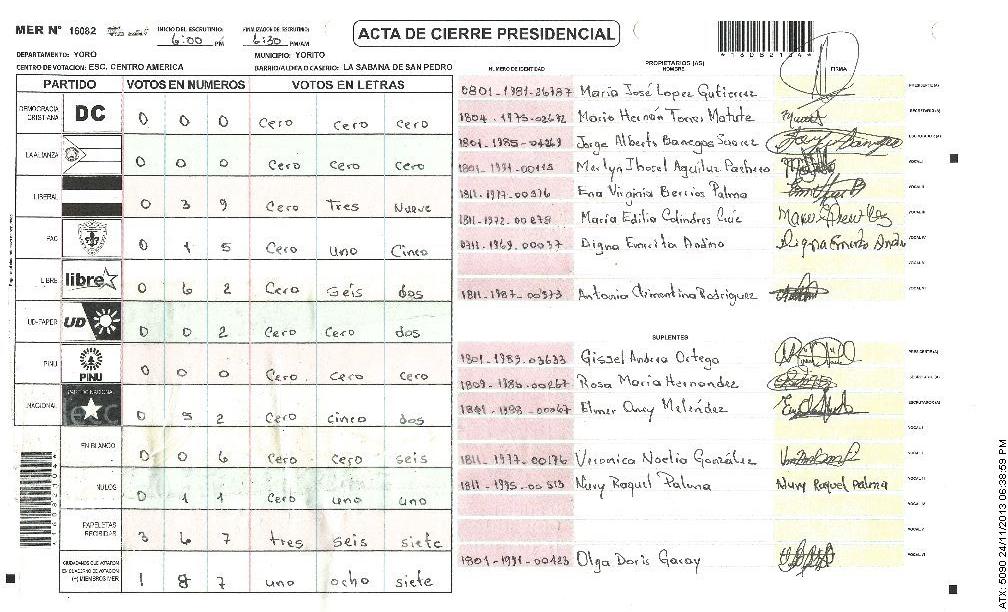 MER Nº 16082
INICIO DEL ESCRUTINIO: 6:00 PM
FINALIZACION DE ESCRUTINIO: 6:30 PM/AM
ACTA DE CIERRE PRESIDENCIAL
DEPARTAMENTO: YORO
MUNICIPIO: YORITO
CENTRO DE VOTACION: ESC. CENTRO AMERICA
BARRIO/ALDEA O CASERIO: LA SABANA DE SAN PEDRO
PARTIDO VOTOS EN NUMEROS VOTOS EN LETRAS
DEMOCRACIA CRISTIANA DC 0 0 0 Cero Cero Cero
LA ALIANZA 0 0 0 Cero Cero Cero
LIBERAL 0 3 9 Cero Tres Nueve
PAC 0 1 5 Cero uno Cinco
LIBRE libre 0 6 2 Cero Seis dos
UD-FAPER UD 0 0 2 Cero Cero dos
PINU PINU 0 0 0 Cero Cero Cero
NACIONAL 0 5 2 Cero cinco dos
EN BLANCO 0 0 6 Cero Cero seis
NULOS 0 1 1 Cero uno uno
PAPELETAS RECIBIDAS 3 6 7 tres seis siete
CIUDADANOS QUE VOTARON EN CUADERNO DE VOTACION (+) MIEMBROS MER 1 8 7 uno ocho siete
PROPIETARIOS (AS)
NUMERO DE IDENTIDAD NOMBRE FIRMA
Maria José Lopez Gutierrez PRESIDENTE(A)
1804-1975-02632 Mario Hernán Torres Matute SECRETARIO(A)
Jorge Alberto Banegas Suarez ESCRUTADOR(A)
Merlyn Jhosel Aguiluz Pacheco VOCAL I
1811-1977-00376 Ena Virginia Berrios Palma VOCAL II
Maria Edilia Colindres VOCAL III
Digna Emerita Andino VOCAL IV
VOCAL V
1811-1987-00373 Antonia Clementina Rodriguez VOCAL VI
SUPLENTES
1801-1989-03633 Gissel Andrea Ortega PRESIDENTE(A)
1809-1985-00267 Rosa Maria Hernandez SECRETARIO(A)
Elmer Meléndez ESCRUTADOR(A)
VOCAL I
1811-1977-00176 Veronica Noelia González VOCAL II
1811-1995-00313 Nury Raquel Paluma Nury Raquel Paluma VOCAL III
VOCAL IV
VOCAL V
1801-1991-00123 Olga Doris Garay VOCAL VI
ATX: 5090 24/11/2013 06:38:59 PM